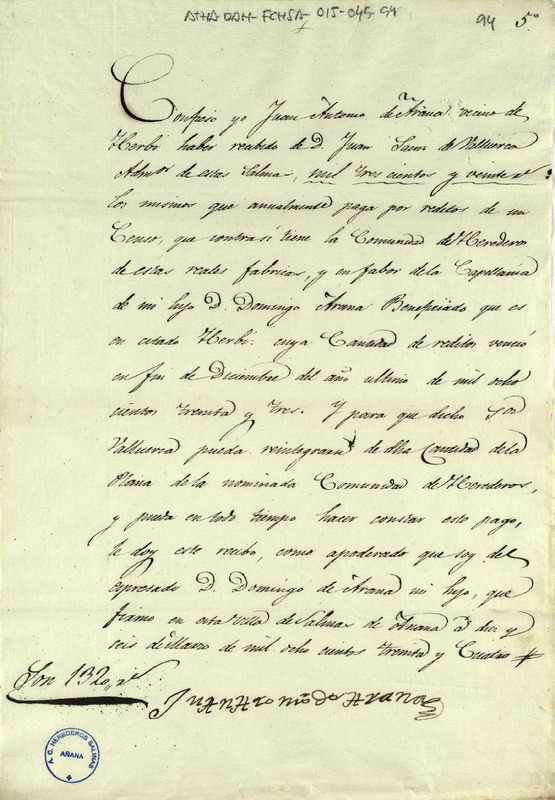 ATHA-DAH-FCHSA-015-045-94
94 5.º
Confieso yo Juan Antonio de Arana vecino de
Herbi haber recibido de D. Juan Saenz de Valluerca
Admor de estas Salinas, mil tres cientos y veinte rs
los mismos que anualmente paga por reditos de un
Censo, que contra sí tiene la Comunidad de Herederos
de estas reales fabricas, y en fabor de la Capellania
de mi hijo D. Domingo Arana Beneficiado que es
en citado Herbi: cuya Cantidad de reditos venció
en fin de Diciembre del año ultimo de mil ocho
cientos treinta y tres. Y para que dicho Sor
Valluerca pueda reintegrarse de dha Cantidad de la
de la nominada Comunidad de Herederos,
y pueda en todo tiempo hacer constar este pago,
le doy este recibo, como apoderado que soy del
espresado D. Domingo de Arana mi hijo, que
firmo en esta Villa de Salinas de Añana á diez y
seis de Marzo de mil ocho cientos treinta y Cuatro #
Son 1320 rs
Juan Antonio de Arana
A. C. HEREDEROS SALINAS
AÑANA